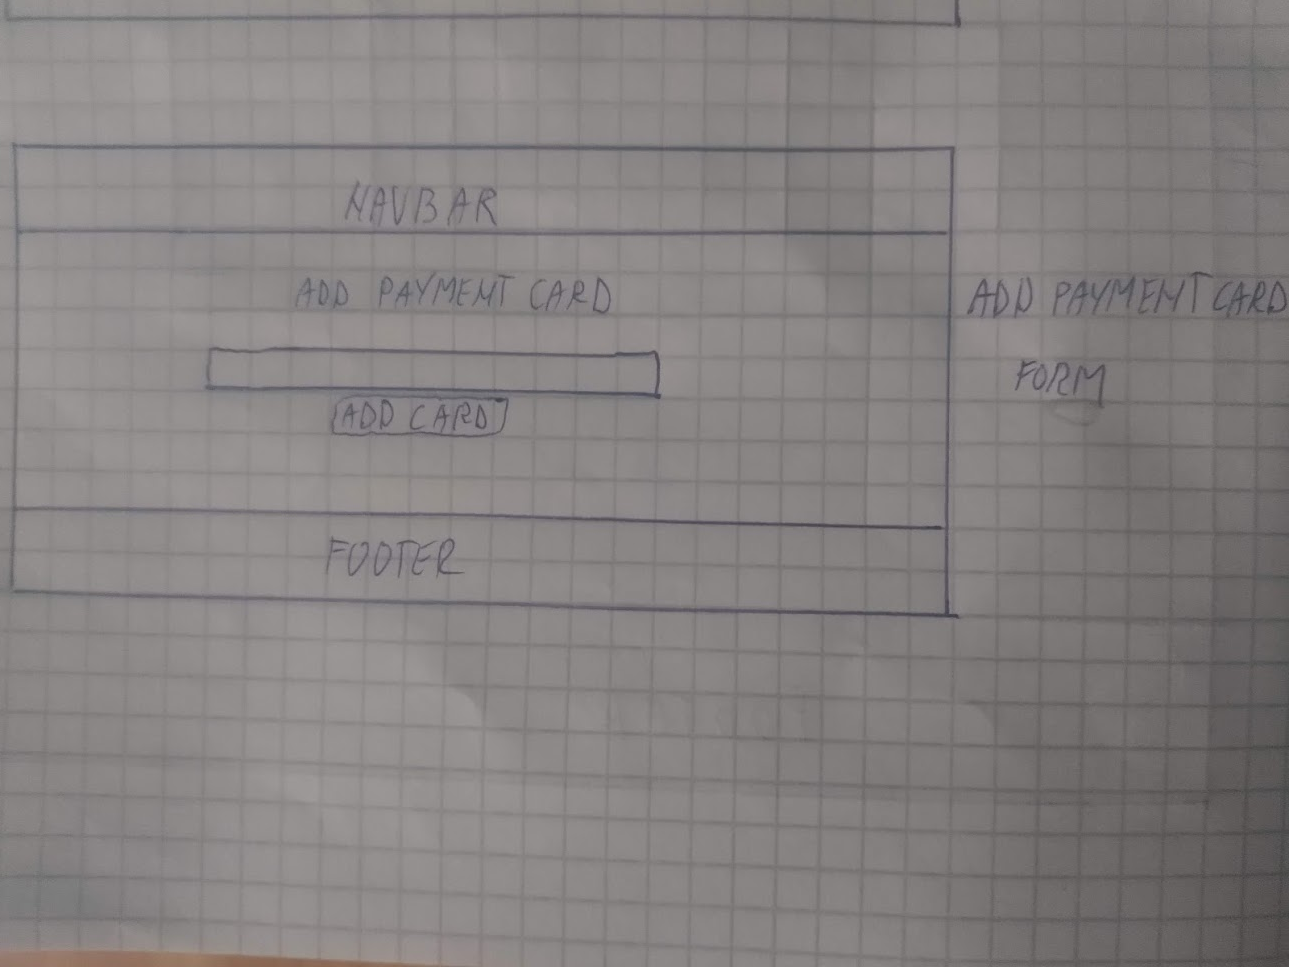 NAVBAR
ADD PAYMENT CARD
ADD CARD
FOOTER
ADD PAYMENT CARD
FORM